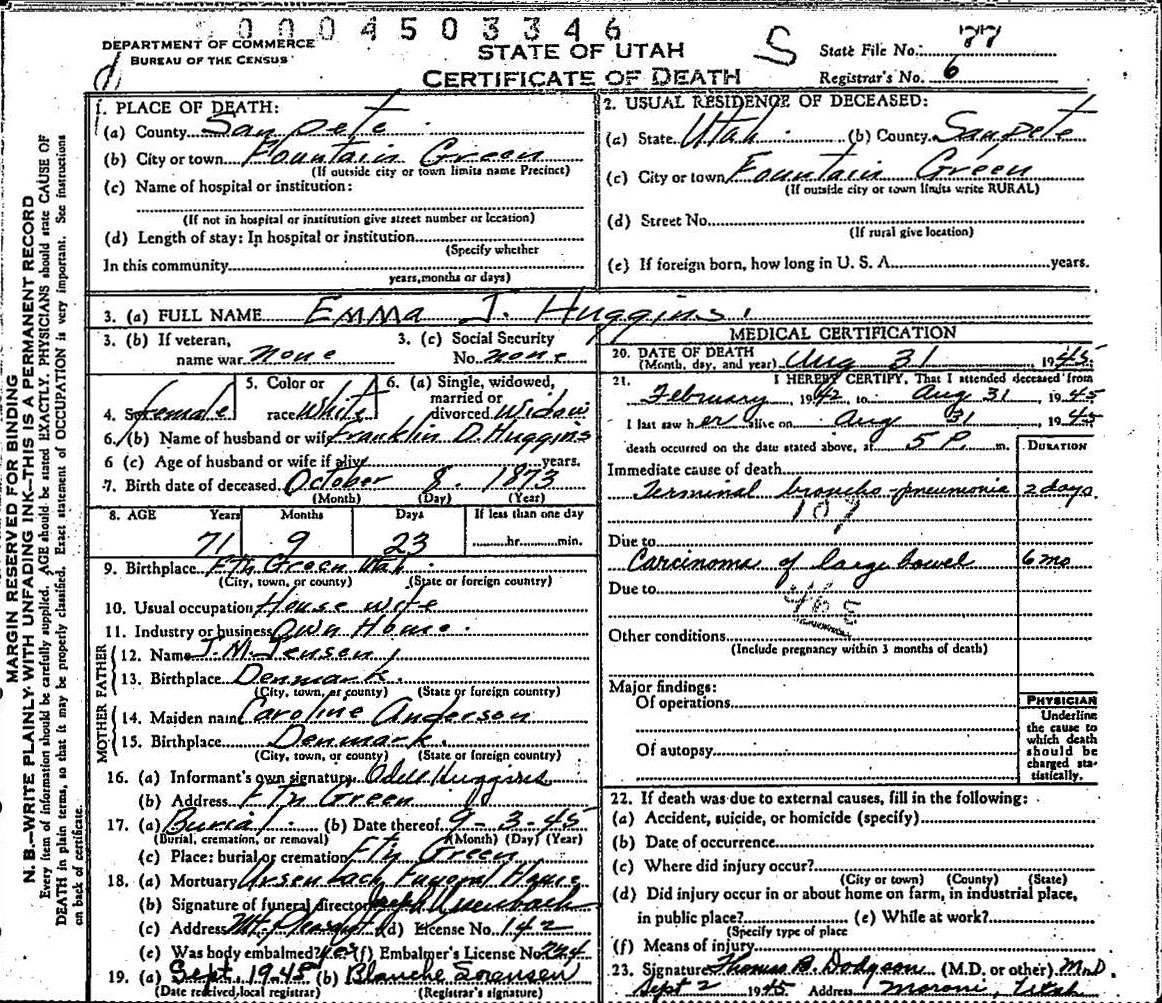 0004503346
DEPARTMENT OF COMMERCE
BUREAU OF THE CENSUS
STATE OF UTAH
CERTIFICATE OF DEATH
S
State File No. 77
Registrar's No. 6
MARGIN RESERVED FOR BINDING
N. B.—WRITE PLAINLY WITH UNFADING INK—THIS IS A PERMANENT RECORD
Every item of information should be carefully supplied. AGE should be stated EXACTLY. PHYSICIANS should state CAUSE OF
DEATH in plain terms, so that it may be properly classified. Exact statement of OCCUPATION is very important. See instructions
on back of certificate.
1. PLACE OF DEATH:
(a) County San pete
(b) City or town Fountain Green
(If outside city or town limits name Precinct)
(c) Name of hospital or institution:
(If not in hospital or institution give street number or location)
(d) Length of stay: In hospital or institution
(Specify whether
In this community
years, months or days)
2. USUAL RESIDENCE OF DECEASED:
(a) State Utah (b) County Sanpete
(c) City or town Fountain Green
(If outside city or town limits write RURAL)
(d) Street No.
(If rural give location)
(e) If foreign born, how long in U. S. A. years.
3. (a) FULL NAME Emma J. Huggins
3. (b) If veteran,
name war none
3. (c) Social Security
No. none
4. Sex female
5. Color or
race White
6. (a) Single, widowed,
married or
divorced Widow
6. (b) Name of husband or wife Franklin D. Huggins
6 (c) Age of husband or wife if alive years.
7. Birth date of deceased October 8 1873
(Month) (Day) (Year)
8. AGE Years Months Days If less than one day
71 9 23 hr. min.
9. Birthplace Ftn Green Utah
(City, town, or county) (State or foreign country)
10. Usual occupation House wife
11. Industry or business Own Home
FATHER
12. Name J. M. Jensen
13. Birthplace Denmark
(City, town, or county) (State or foreign country)
MOTHER
14. Maiden name Caroline Anderson
15. Birthplace Denmark
(City, town, or county) (State or foreign country)
16. (a) Informant's own signature Odell Huggins
(b) Address Ftn Green
17. (a) Burial (b) Date thereof 9-3-45
(Burial, cremation, or removal) (Month) (Day) (Year)
(c) Place: burial or cremation Ftn Green
18. (a) Mortuary Ursenbach Funeral Home
(b) Signature of funeral director Ursenbach
(c) Address Mt. Pleasant (d) License No. 142
(e) Was body embalmed? yes (f) Embalmer's License No. 244
19. (a) Sept. 1945 (b) Blanche Sorensen
(Date received local registrar) (Registrar's signature)
MEDICAL CERTIFICATION
20. DATE OF DEATH
(Month, day, and year) Aug 31 1945
21. I HEREBY CERTIFY, That I attended deceased from
February 1942, to Aug 31 1945
I last saw her alive on Aug 31 1945
death occurred on the date stated above, at 5 P. m.
DURATION
Immediate cause of death
Terminal broncho-pneumonia 2 days
107
Due to
Carcinoma of large bowel 6 mo
Due to
46E
Other conditions
(Include pregnancy within 3 months of death)
Major findings:
Of operations
Of autopsy
PHYSICIAN
Underline
the cause to
which death
should be
charged sta-
tistically.
22. If death was due to external causes, fill in the following:
(a) Accident, suicide, or homicide (specify)
(b) Date of occurrence
(c) Where did injury occur?
(City or town) (County) (State)
(d) Did injury occur in or about home on farm, in industrial place,
in public place? (e) While at work?
(Specify type of place
(f) Means of injury
23. Signature Thomas B. Dodgson (M.D. or other) M.D.
Sept 2 1945 Address Moroni, Utah